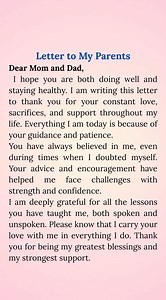 Letter to My Parents
Dear Mom and Dad,
I hope you are both doing well and
staying healthy. I am writing this letter
to thank you for your constant love,
sacrifices, and support throughout my
life. Everything I am today is because of
your guidance and patience.
You have always believed in me, even
during times when I doubted myself.
Your advice and encouragement have
helped me face challenges with
strength and confidence.
I am deeply grateful for all the lessons
you have taught me, both spoken and
unspoken. Please know that I carry your
love with me in everything I do. Thank
you for being my greatest blessings and
my strongest support.